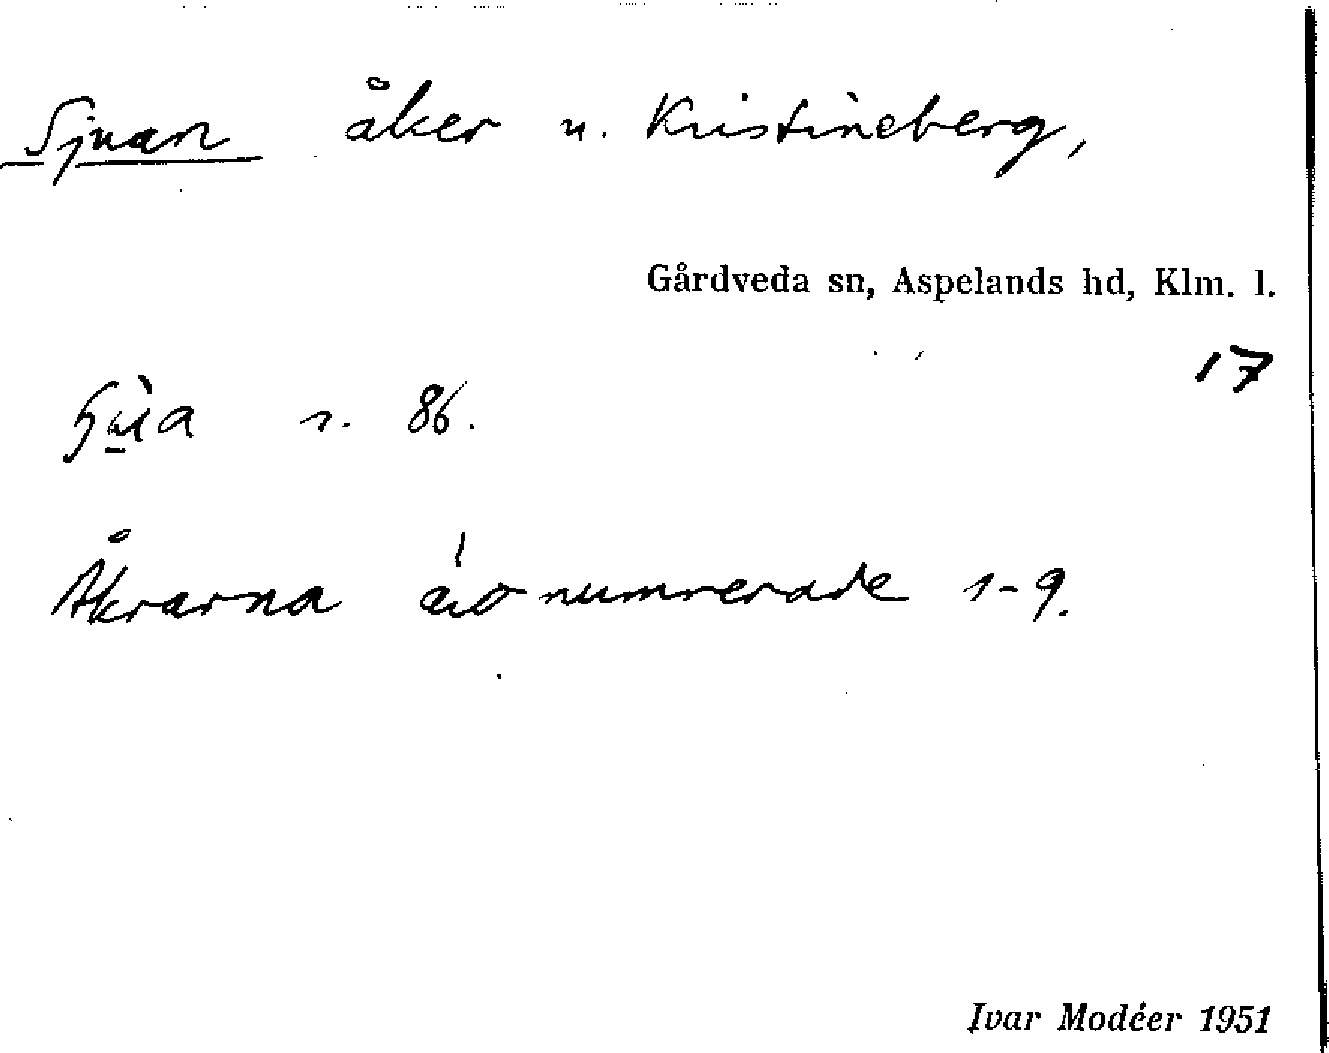 Sjuan åker u. Kristineberg,
Gårdveda sn, Aspelands hd, Klm. l.
17
s. 86.
Åkrarna äro numrerade 1-9.
Ivar Modéer 1951